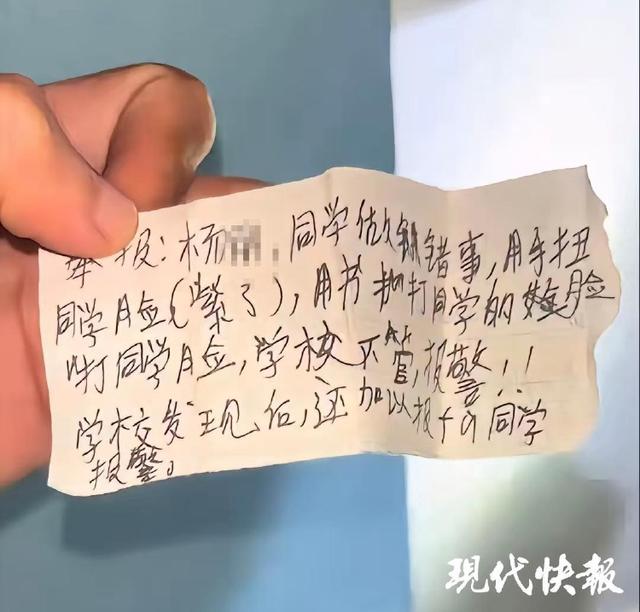 举报:杨 同学做错事,用手扭
同学脸(紫了),用书打同学的脸
打同学脸,学校不管,报警!!
学校发现后,还加以报 同学
报警。
现代快报